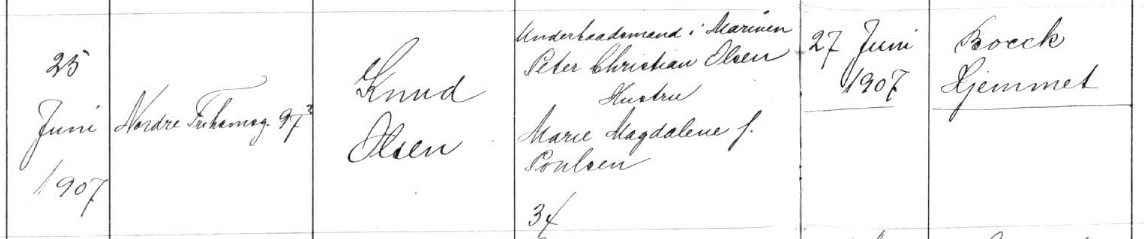 25
Juni
1907
Nordre Frihavnsg. 97³
Knud
Olsen
Underbaadsmand i Marinen
Peter Christian Olsen
Hustru
Marie Magdalene f.
Poulsen
34
27 Juni
1907
Boeck
Hjemmet